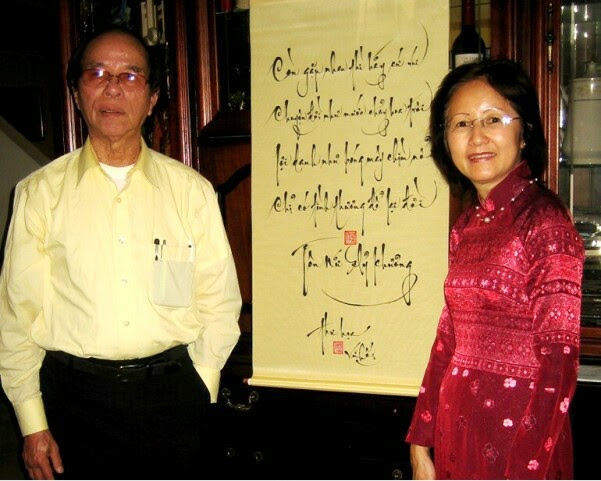 Còn gặp nhau thì hãy cứ vui
Chuyện đời như nước chảy hoa trôi
Lợi danh như bóng mây chìm nổi
Chỉ có tình thương để lại đời
Tôn Nữ Hỷ Khương
Thư họa
Vũ Hối